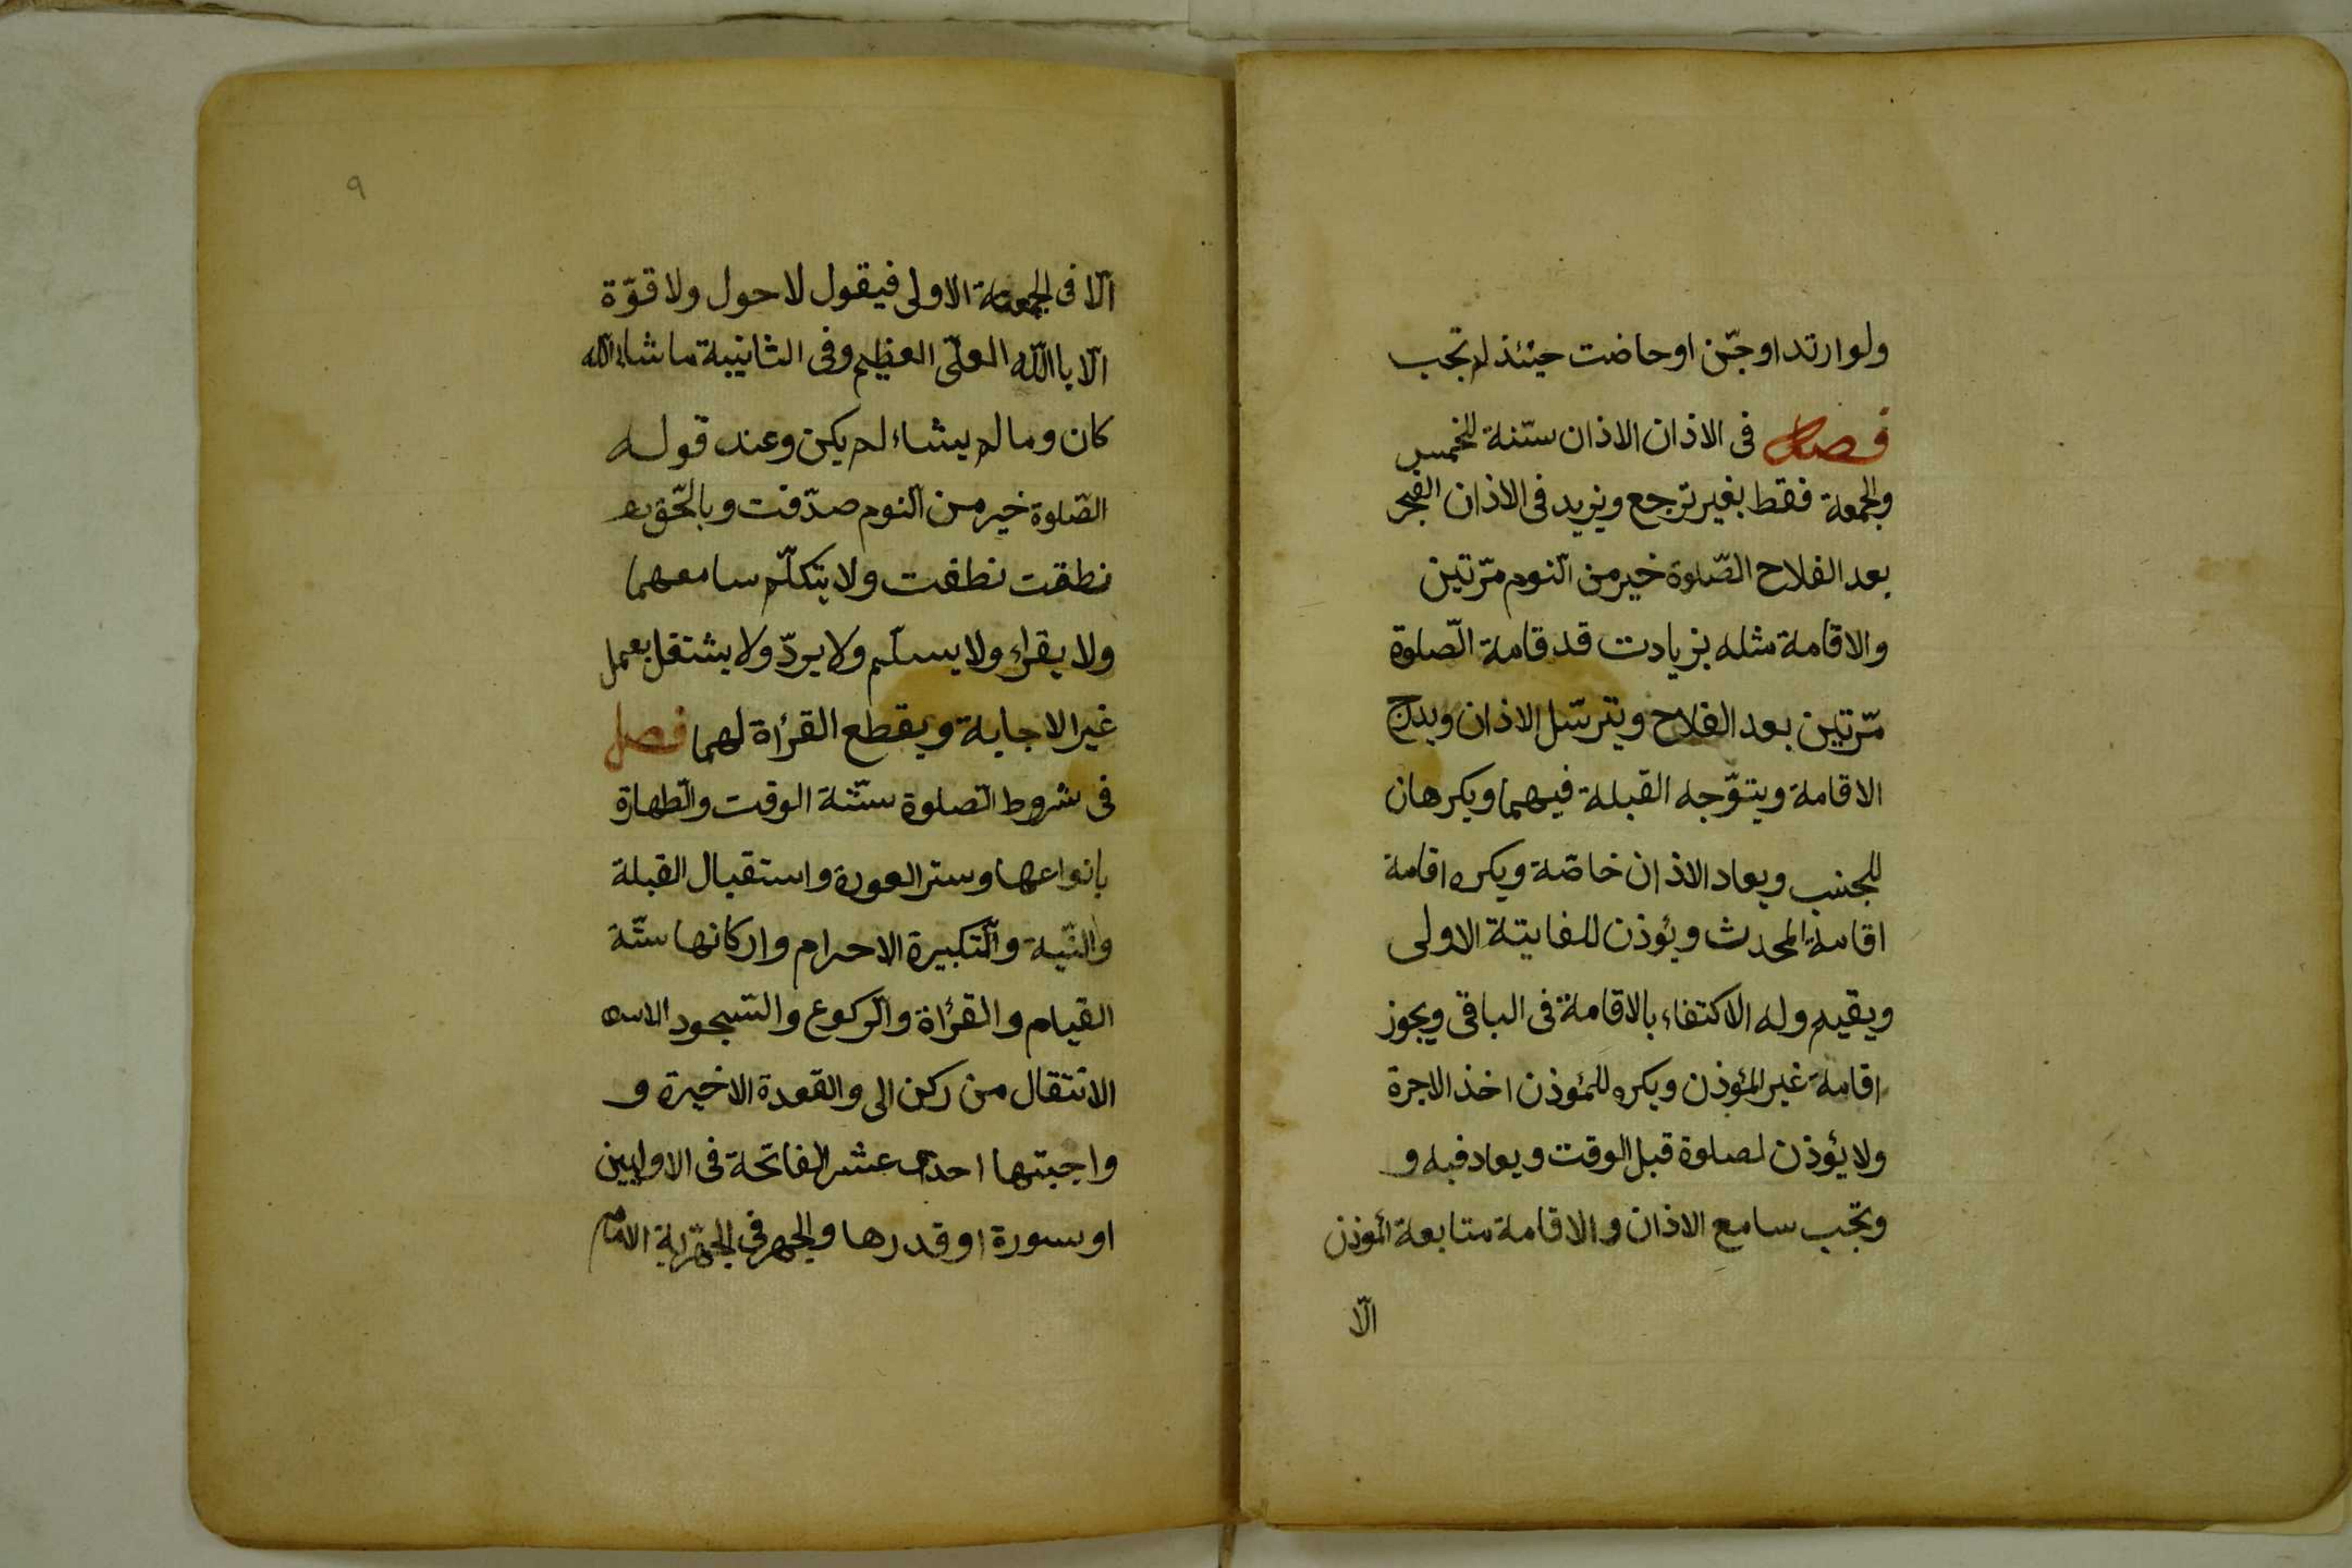 ولو ارتد او جنّ او حاضت حينئذ لم تجب
فصل فى الاذان الاذان سنّة للخمس
والجمعة فقط بغير ترجع ويزيد فى الاذان الفجر
بعد الفلاح الصّلوة خير من النّوم مرّتين
والاقامة مثله بزيادت قد قامة الصّلوة
مرّتين بعد الفلاح ويترسّل الاذان ويدرج
الاقامة ويتوّجه القبلة فيهما ويكرهان
للجنب ويعاد الاذان خاصّة ويكره اقامة
اقامة المحدث ويؤذن للفايتة الاولى
ويقيم وله الاكتفاء بالاقامة فى الباقى ويجوز
اقامة غير المؤذن ويكره للمؤذن اخذ الاجرة
ولا يؤذن لصلوة قبل الوقت ويعاد فيه و
وتجب سامع الاذان والاقامة متابعة المؤذن
الّا
٩
الّا فى الجمعة الاولى فيقول لا حول ولا قوّة
الّا باالله العلّى العظيم وفى الثانيية ما شاء الله
كان وما لم يشاء لم يكن وعند قوله
الصّلوة خير من النّوم صدّقت وبالحّق
نطقت نطقت ولا يتكلّم سامعهما
ولا يقراء ولا يسلّم ولا يردّ ولا يشتغل بعمل
غير الاجابة ويقطع القرأة لهما فصل
فى شروط الصّلوة ستّنة الوقت والطّهارة
بانواعها وستر العورة واستقبال القبلة
والنّية والتّكبيرة الاحرام واركانها ستّة
القيام والقرأة والرّكوع والسّجود
الانتقال من ركن الى والقعدة الاخيرة و
واجبتها احدى عشر الفاتحة فى الاوليين
او سورة او قدرها والجهر فى الجهّرية الامام